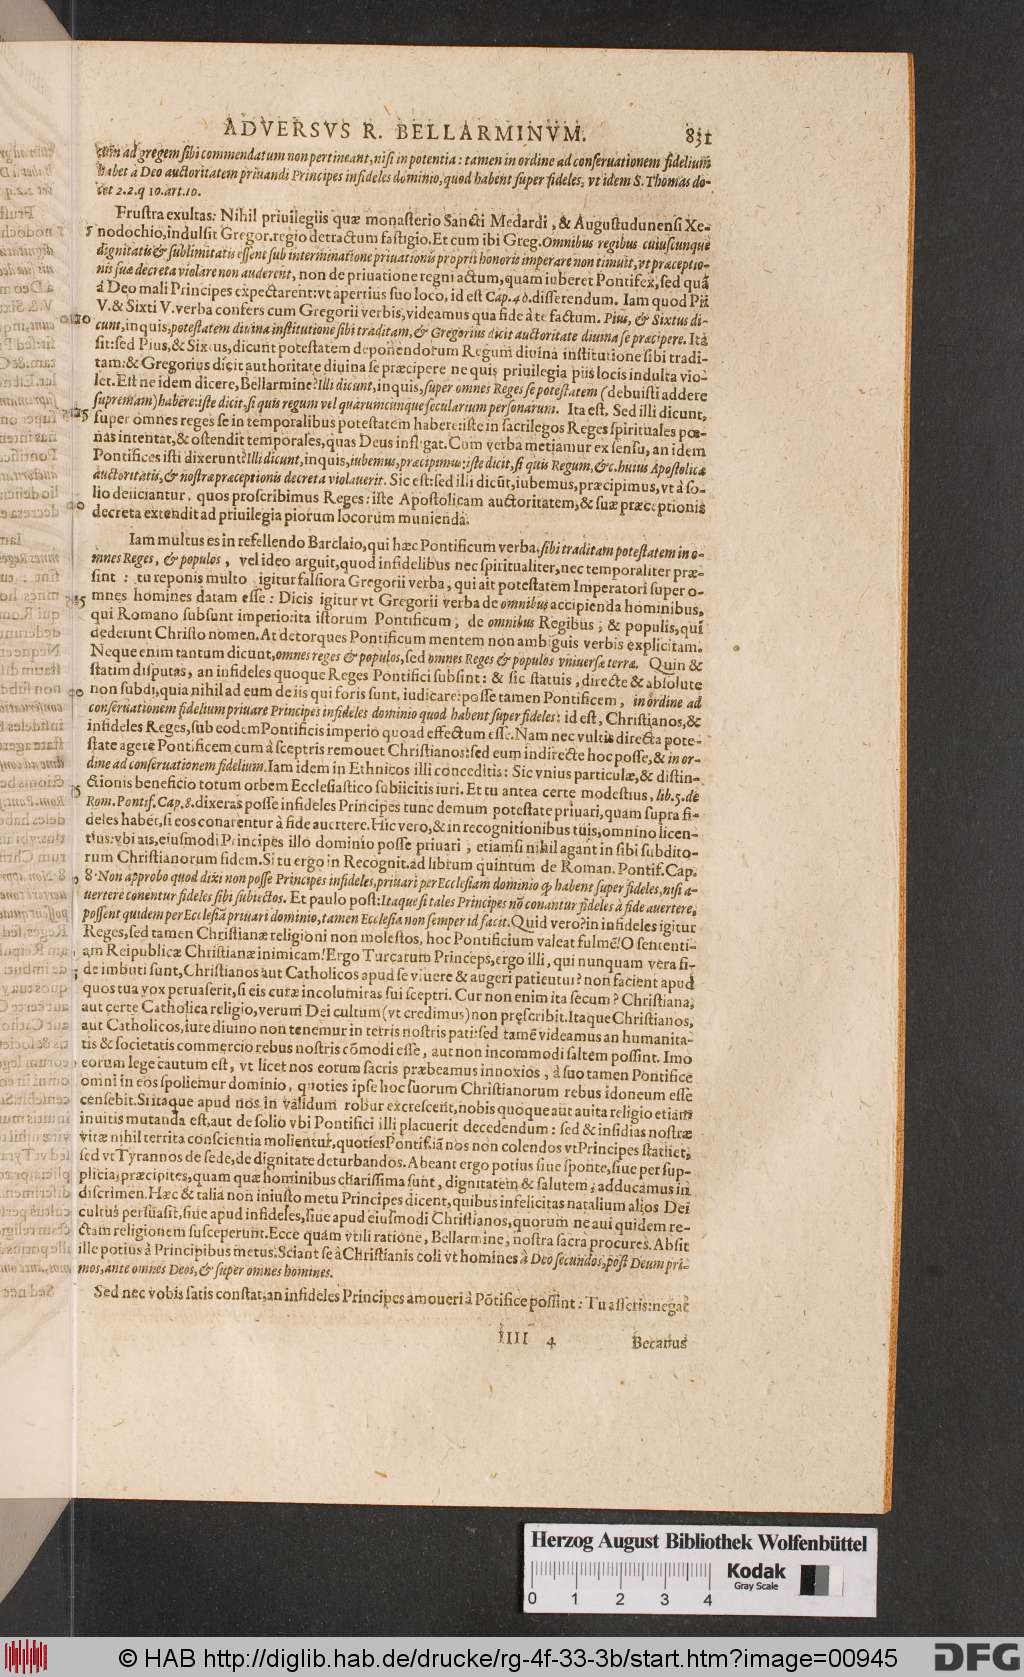 ADVERSVS R. BELLARMINVM. 831
cum ad gregem sibi commendatum non pertineant, nisi in potentia: tamen in ordine ad conseruationem fidelium
habet à Deo auctoritatem priuandi Principes infideles dominio, quod habent super fideles, vt idem S. Thomas do-
cet 2.2.q 10.art.10.
Frustra exultas: Nihil priuilegiis quæ monasterio Sancti Medardi, & Augustudunensi Xe-
5 nodochio, indulsit Gregor. regio detractum fastigio. Et cum ibi Greg. Omnibus regibus cuiuscunque
dignitatis & sublimitatis essent sub interminatione priuationis proprii honoris imperare non timuit, vt præceptio-
nis suæ decreta violare non auderent, non de priuatione regni actum, quam iuberet Pontifex, sed quã
à Deo mali Principes expectarent: vt apertius suo loco, id est Cap. 40. disseremdum. Iam quod Pii
V. & Sixti V. verba confers cum Gregorii verbis, videamus qua fide à te factum. Pius, & Sixtus di-
10 cunt, inquis, potestatem diuina institutione sibi traditam, & Gregorius dicit auctoritate diuina se præcipere. Ita
sit: sed Pius, & Sixtus, dicunt potestatem deponendorum Regum diuina institutione sibi tradi-
tam: & Gregorius dicit authoritate diuina se præcipere ne quis priuilegia piis locis indulta vio-
let. Est ne idem dicere, Bellarmine? Illi dicunt, inquis, super omnes Reges se potestatem (debuisti addere
supremam) habere: iste dicit, si quis regum vel quarumcunque secularium personarum. Ita est. Sed illi dicunt,
15 super omnes reges se in temporalibus potestatem habere: iste in sacrilegos Reges spirituales pœ-
nas intentat, & ostendit temporales, quas Deus infligat. Cum verba metiamur ex sensu, an idem
Pontifices isti dixerunt? Illi dicunt, inquis, iubemus, præcipimus: iste dicit, si quis Regum, &c. huius Apostolicæ
auctoritatis, & nostræ præceptionis decreta violauerit. Sic est: sed illi dicũt, iubemus, præcipimus, vt à so-
lio deiiciantur, quos proscribimus Reges: iste Apostolicam auctoritatem, & suæ præceptionis
20 decreta extendit ad priuilegia piorum locorum munienda.
Iam multus es in refellendo Barclaio, qui hæc Pontificum verba, sibi traditam potestatem in o-
mnes Reges, & populos, vel ideo arguit, quod infidelibus nec spiritualiter, nec temporaliter præ-
sint: tu reponis multo igitur falsiora Gregorii verba, qui ait potestatem Imperatori super o-
25 mnes homines datam esse: Dicis igitur vt Gregorii verba de omnibus accipienda hominibus,
qui Romano subsunt imperio: ita istorum Pontificum, de omnibus Regibus, & populis, qui
dederunt Christo nomen. At detorques Pontificum mentem non ambiguis verbis explicitam.
Neque enim tantum dicunt, omnes reges & populos, sed omnes Reges & populos vniuersæ terræ. Quin &
statim disputas, an infideles quoque Reges Pontifici subsint: & sic statuis, directe & absolute
30 non subdi, quia nihil ad eum de iis qui foris sunt, iudicare: posse tamen Pontificem, in ordine ad
conseruationem fidelium priuare Principes infideles dominio quod habent super fideles: id est, Christianos, &
infideles Reges, sub eodem Pontificis imperio quoad effectum esse. Nam nec vultis directa pote-
state agere Pontificem cum à sceptris remouet Christianos: sed eum indirecte hoc posse, & in or-
dine ad conseruationem fidelium. Iam idem in Ethnicos illi conceditis: Sic vnius particulæ, & distin-
35 ctionis beneficio totum orbem Ecclesiastico subiicitis iuri. Et tu antea certe modestius, lib. 5. de
Rom. Pontif. Cap. 8. dixeras posse infideles Principes tunc demum potestate priuari, quam supra fi-
deles habet, si eos conarentur à fide auertere. Hic vero, & in recognitionibus tuis, omnino licen-
tius: vbi ais, eiusmodi Principes illo dominio posse priuari, etiamsi nihil agant in sibi subdito-
rum Christianorum fidem. Si tu ergo in Recognit. ad librum quintum de Roman. Pontif. Cap.
8. Non approbo quod dixi non posse Principes infideles, priuari per Ecclesiam dominio q̃ habent super fideles, nisi a-
uertere conentur fideles sibi subiectos. Et paulo post: Itaque si tales Principes nõ conantur fideles à fide auertere,
possent quidem per Ecclesiã priuari dominio, tamen Ecclesia non semper id facit. Quid vero? in infideles igitur
Reges, sed tamen Christianæ religioni non molestos, hoc Pontificium valeat fulmẽ! O sententi-
am Reipublicæ Christianæ inimicam! Ergo Turcarum Princeps, ergo illi, qui nunquam vera fi-
de imbuti sunt, Christianos aut Catholicos apud se viuere & augeri patientur? non facient apud
quos tua vox peruaserit, si eis curæ incolumitas sui sceptri. Cur non enim ita secum? Christiana,
aut certe Catholica religio, verum Dei cultum (vt credimus) non pręscribit. Itaque Christianos,
aut Catholicos, iure diuino non tenemur in terris nostris pati: sed tamẽ videamus an humanita-
tis & societatis commercio rebus nostris cõmodi esse, aut non incommodi saltem possint. Imo
eorum lege cautum est, vt licet nos eorum sacris præbeamus innoxios, à suo tamen Pontifice
omni in eos spoliemur dominio, quoties ipse hoc suorum Christianorum rebus idoneum esse
censebit. Si itaque apud nos in validum robur excrescent, nobis quoque aut auita religio etiam
inuitis mutanda est, aut de solio vbi Pontifici illi placuerit decedendum: sed & insidias nostræ
vitæ nihil territa conscientia molientur, quoties Pontif. iã nos non colendos vt Principes statuet,
sed vt Tyrannos de sede, de dignitate deturbandos. Abeant ergo potius siue sponte, siue per sup-
plicia præcipites, quam quæ hominibus charissima sunt, dignitatem & salutem, adducamus in
discrimen. Hæc & talia non iniusto metu Principes dicent, quibus infelicitas natalium alios Dei
cultus persuasit, siue apud infideles, siue apud eiusmodi Christianos, quorum ne aui quidem re-
ctam religionem susceperunt. Ecce quàm vtili ratione, Bellarmine, nostra sacra procures. Absit
ille potius à Principibus metus. Sciant se à Christianis coli vt homines à Deo secundos, post Deum pri-
mos, ante omnes Deos, & super omnes homines.
Sed nec vobis satis constat, an infideles Principes amoueri à Põtifice possint: Tu asseris: negat
IIII 4 Becanus
Herzog August Bibliothek Wolfenbüttel
Kodak
Gray Scale
0 1 2 3 4
© HAB http://diglib.hab.de/drucke/rg-4f-33-3b/start.htm?image=00945
DFG